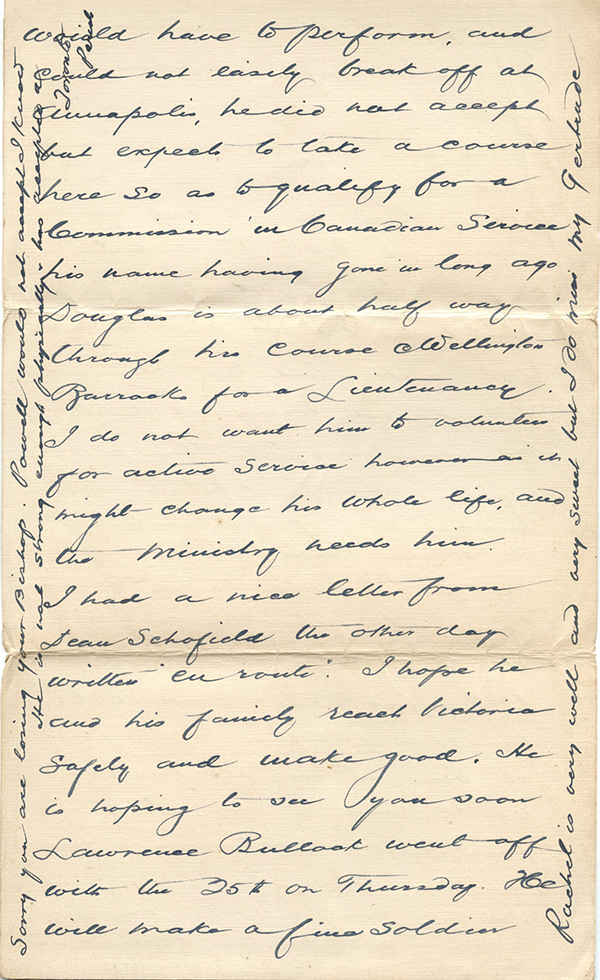 would have to perform, and
could not easily break off at
Annapolis, he did not accept
but expects to take a course
here so as to qualify for a
Commission in Canadian Service
his name having gone in long ago
Douglas is about half way
through his course Wellington
Barracks for a Lieutenancy.
I do not want him to volunteer
for active service however as it
might change his whole life, and
the Ministry needs him.
I had a nice letter from
Dean Schofield the other day
written "en route". I hope he
and his family reach Victoria
safely and make good. He
is hoping to see you soon
Lawrence Bullock went off
with the 25th on Thursday. He
will make a fine soldier
Rachel is very well and very sweet but I do miss my Gertrude
Sorry you are losing your Bishop. Powell would not accept I know
He is not strong enough physically & has accepted a
Toronto